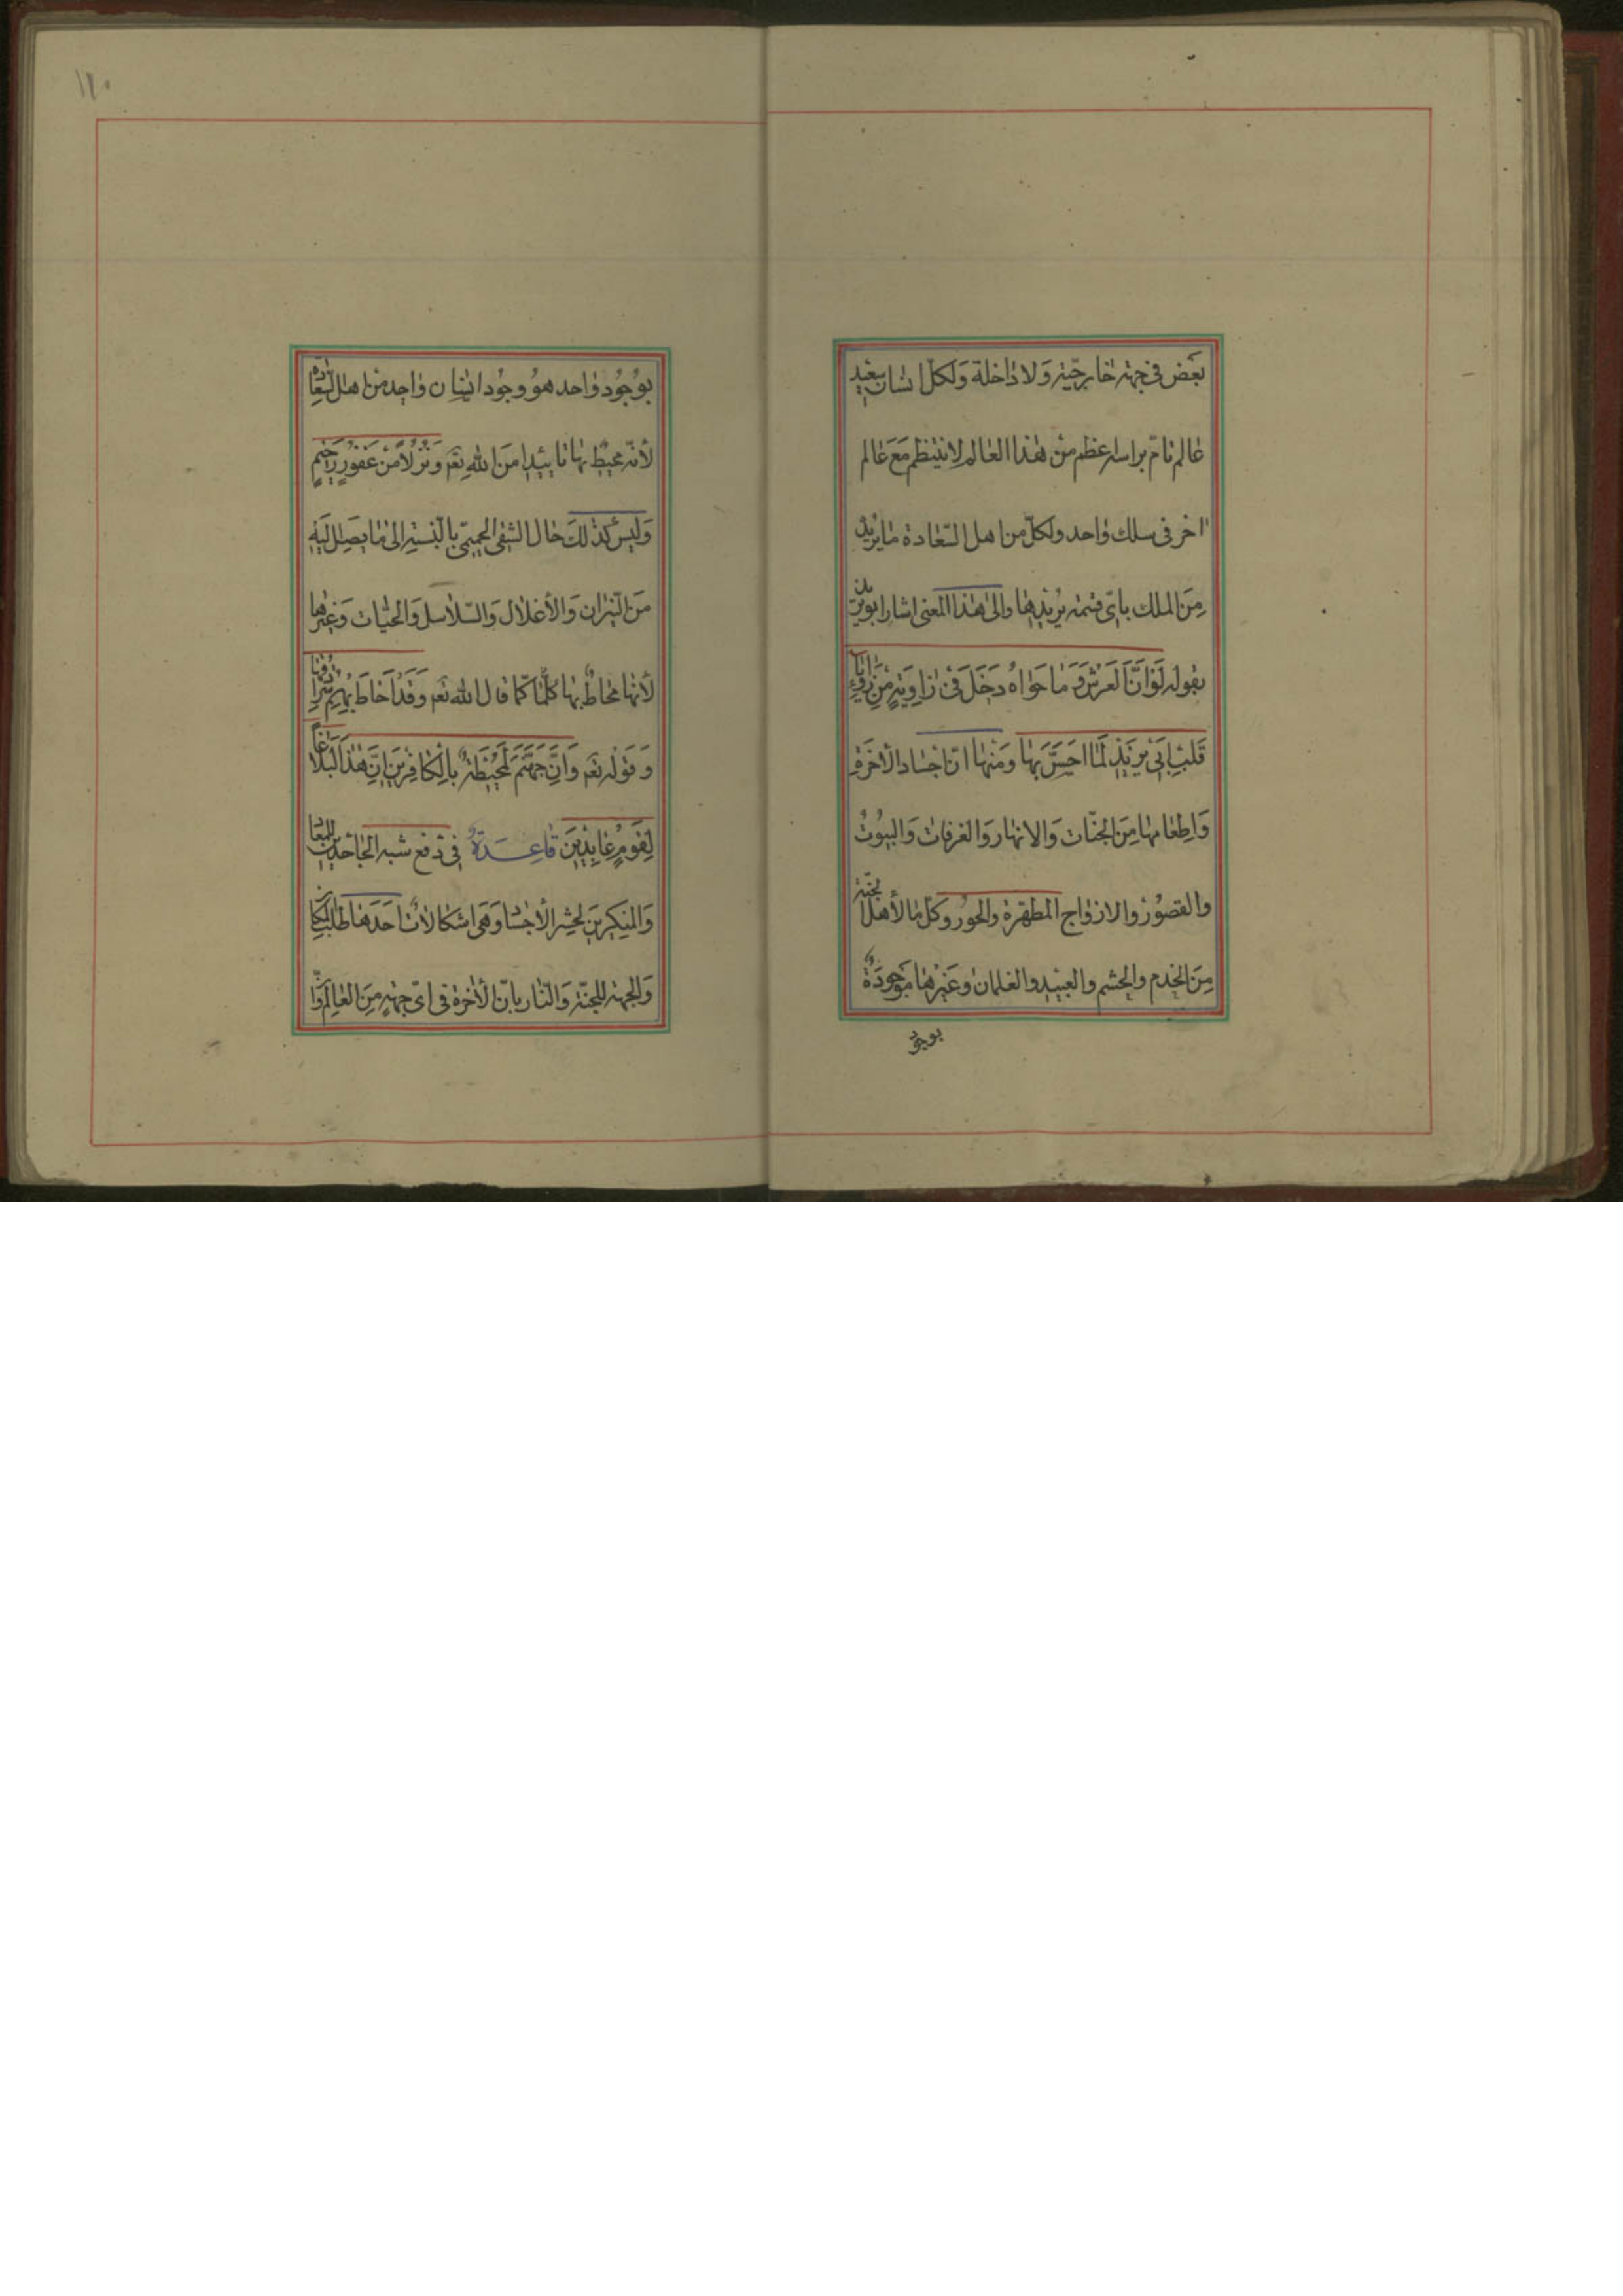 بعض فى جهة خارجيّة ولا داخلة ولكلّ انسان سعيد
عالم تامّ براسه اعظم من هذا العالم لا ينتظم مع عالم
اخر فى سلك واحد ولكلّ من اهل السّعادة ما يريد
مِنَ الملك باىّ قسمة يُريدها والى هذا المعنى اشار ابويزيد
بقوله لَوْ اَنَّ العَرْشَ وَمَا حَوٰاهُ دَخَلَ فى زاوِيَةٍ مِنْ زَوٰايَا
قَلْبِ اَبى يَزيدٍ لَمَا اَحَسَّ بِهَا وَمنها انّ اجساد الأخرة
وَاعظامها مِنَ الجنّات وَالانهار وَالغرفات وَالبيُوت
والقصُور والازواج المطهّرة والحُور وكلّ ما لأهل الجنّة
مِنَ الخدم والحشم والعبيد والغلمان وغيرها مَوْجودَةٌ
بوجود
١٢٠
بوُجُود واحد هوُ وجُود انسان واحد من اهل السّعادة
لأنّه محيط بها تاييدا منَ الله تعَ وَنُزُلاً مِنْ غَفُورٍ رَحيمٍ
وَليس كذلكَ حال الشقى الجحيمى بالنسبة الى ما يصل اليه
من النّيران وَالأغلال وَالسّلاسل وَالحيّات وَغيرها
لأنّها محاطٌ بها كلّما كما قال الله تعَ وَقَدْ اَحَاطَ بِهِمْ سُرَادِقُهَا
وَقوله تعَ وَاِنَّ جَهَنَّمَ لَمُحيطَةٌ بِالْكافِرينَ اِنَّ هٰذَا لَبَلَاغاً
لِقَوْمٍ عَابِدينَ قاعِدَةٌ فى دفع شبه الجاحدين للمعاد
وَالمنكرين لحشر الأجساد وَهى اشكالات احَدهَا طلب المكان
وَالجهة للجنّة وَالنّار بانّ الأخرة فى اىّ جهةٍ مِنَ العالم وَ